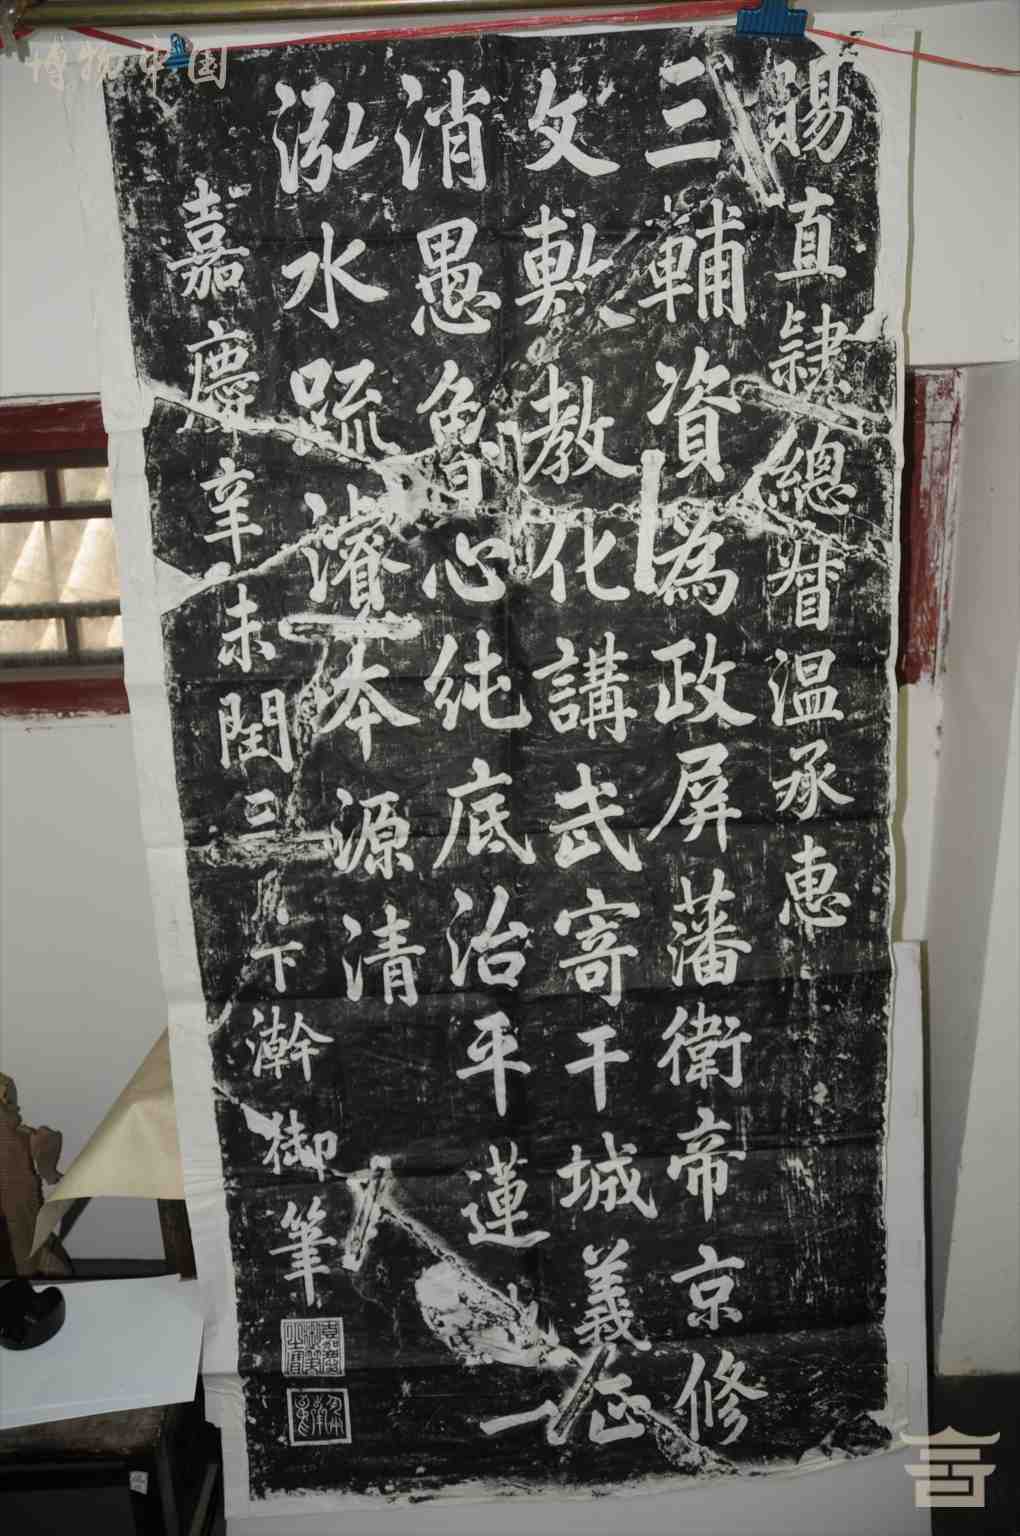 賜直隸總督温承惠
三輔資為政屏藩衛帝京修
文敷教化講武寄干城義正
消愚魯心純底治平蓮一
泓水疏濬本源清
嘉慶辛未閏三下澣御筆
博物中国